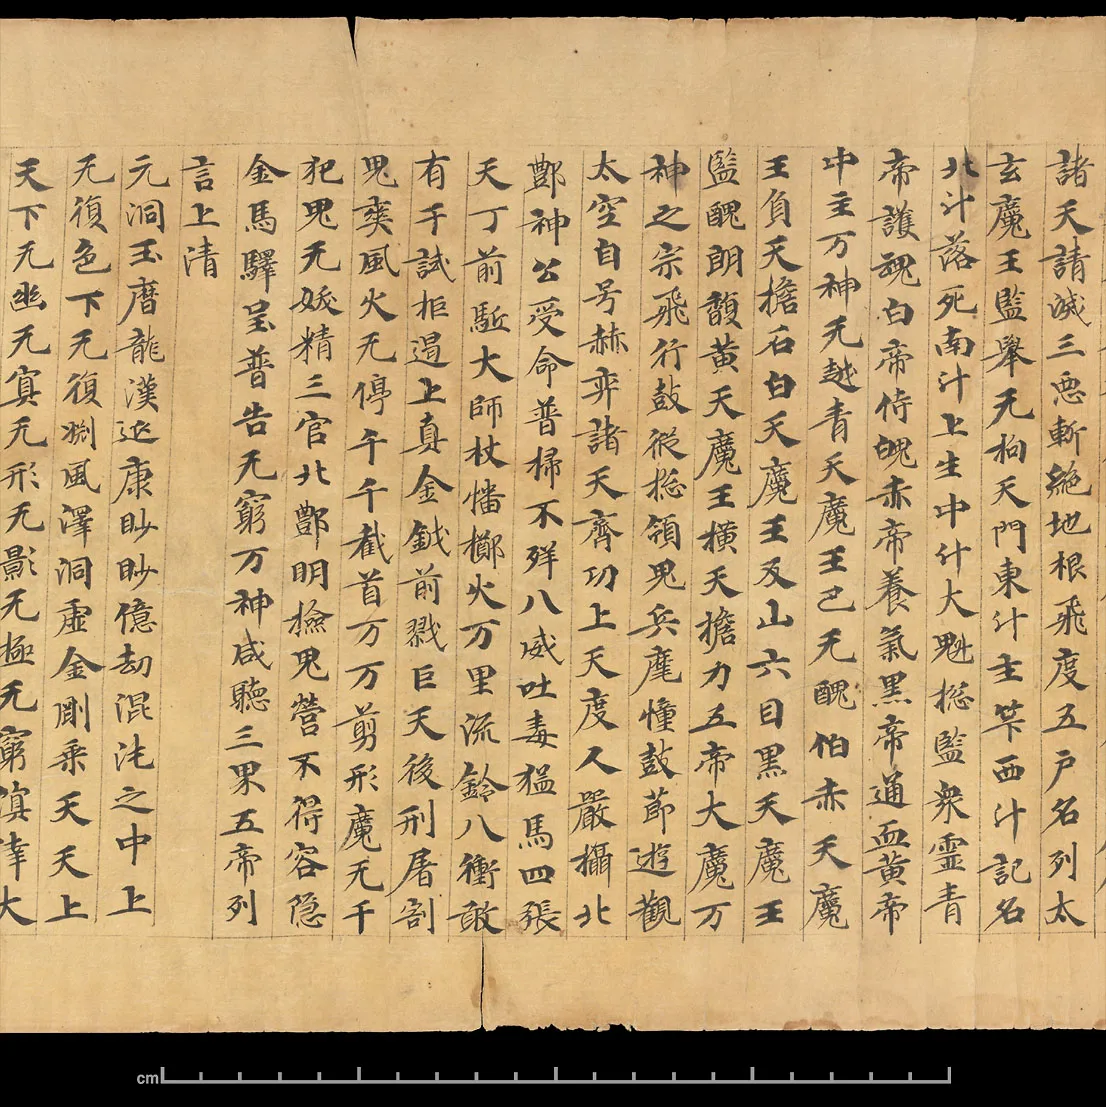 諸天請滅三惡斬絕地根飛度五戶名列太
玄魔王監舉无拘天門東斗主筭西斗記名
北斗落死南斗上生中斗大魁捴監衆霊青
帝護魂白帝侍魄赤帝養氣黑帝通血黃帝
中主万神无越青天魔王巴无醜伯赤天魔
王負天檐石白天魔王反山六目黒天魔王
監醜朗馥黄天魔王橫天檐力五帝大魔万
神之宗飛行鼓從捴領鬼兵麾幢鼓莭遊觀
太空自号赫弈諸天齊功上天度人嚴攝北
酆神公受命普掃不祥八威吐毒猛馬四張
天丁前駈大師杖幡擲火万里流鈴八衝敢
有干試拒遏上真金鉞前戮巨天後刑屠割
鬼爽風火无停千千截首万万剪形魔无干
犯鬼无妖精三官北酆明檢鬼營不得容隠
金馬驛呈普告无窮万神咸聽三界五帝列
言上清
元洞玉曆龍漢延康眇眇億劫混沌之中上
无復色下无復淵風澤洞虛金剛乘天天上
天下无幽无冥无形无影无極无窮溟涬大